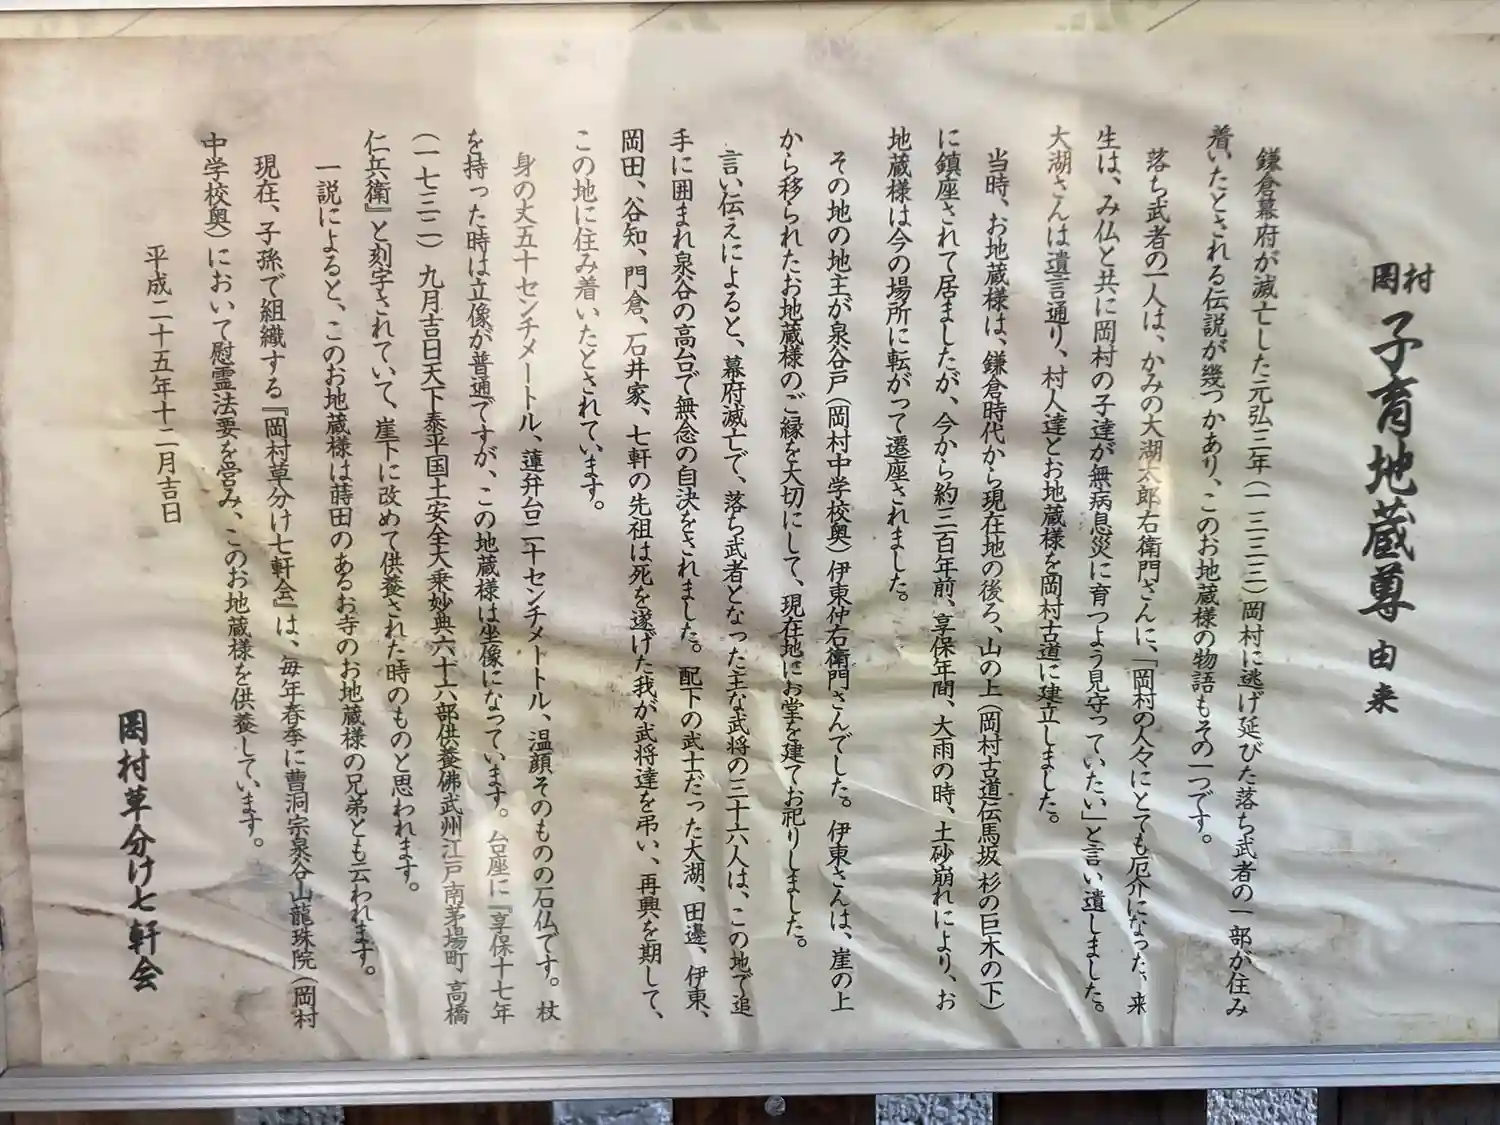 岡村 子育地蔵尊 由来
鎌倉幕府が滅亡した元弘三年(一三三三)岡村に逃げ延びた落ち武者の一部が住み
着いたとされる伝説が幾つかあり、このお地蔵様の物語もその一つです。
落ち武者の一人は、かみの大湖太郎右衛門さんに、「岡村の人々にとても厄介になった、来
生は、み仏と共に岡村の子達が無病息災に育つよう見守っていたい」と言い遺しました。
大湖さんは遺言通り、村人達とお地蔵様を岡村古道に建立しました。
当時、お地蔵様は、鎌倉時代から現在地の後ろ、山の上(岡村古道伝馬坂 杉の巨木の下)
に鎮座されて居ましたが、今から約三百年前、享保年間、大雨の時、土砂崩れにより、お
地蔵様は今の場所に転がって遷座されました。
その地の地主が泉谷戸(岡村中学校奥)伊東仲右衛門さんでした。伊東さんは、崖の上
から移られたお地蔵様のご縁を大切にして、現在地にお堂を建てお祀りしました。
言い伝えによると、幕府滅亡で、落ち武者となった主な武将の三十六人は、この地で追
手に囲まれ泉谷の高台で無念の自決をされました。配下の武士だった大湖、田邊、伊東、
岡田、谷知、門倉、石井家、七軒の先祖は死を遂げた我が武将達を弔い、再興を期して、
この地に住み着いたとされています。
身の丈五十センチメートル、蓮弁台二十センチメートル、温顔そのものの石仏です。杖
を持った時は立像が普通ですが、この地蔵様は坐像になっています。台座に『享保十七年
(一七三二)九月吉日天下泰平国土安全大乗妙典六十六部供養佛武州江戸南茅場町 高橋
仁兵衛』と刻字されていて、崖下に改めて供養された時のものと思われます。
一説によると、このお地蔵様は蒔田のあるお寺のお地蔵様の兄弟とも云われます。
現在、子孫で組織する『岡村草分け七軒会』は、毎年春季に曹洞宗泉谷山龍珠院(岡村
中学校奥)において慰霊法要を営み、このお地蔵様を供養しています。
平成二十五年十二月吉日
岡村草分け七軒会